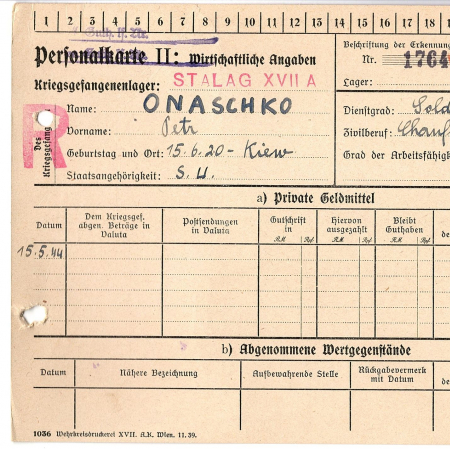 1 2 3 4 5 6 7 8 9 10 11 12 13 14 15 16 17 18
Personalkarte II: Wirtschaftliche Angaben
Beschriftung der Erkennung
Nr. 1764
Kriegsgefangenenlager: STALAG XVII A
Lager:
Des Kriegsgefang
R
Name: ONASCHKO
Dienstgrad: Sold
Vorname: Petr
Zivilberuf: Chauf
Geburtstag und Ort: 15.6.20 - Kiew
Grad der Arbeitsfähig
Staatsangehörigkeit: S. U.
a) Private Geldmittel
Datum
Dem Kriegsgef. abgen. Beträge in Valuta
Postsendungen in Valuta
Gutschrift in RM Rpf.
Hiervon ausgezahlt RM Rpf.
Bleibt Guthaben RM Rpf.
de
15.5.44
b) Abgenommene Wertgegenstände
Datum
Nähere Bezeichnung
Aufbewahrende Stelle
Rückgabevermerk mit Datum
de
1036 Wehrkreisdruckerei XVII. A.K. Wien. 11.39.